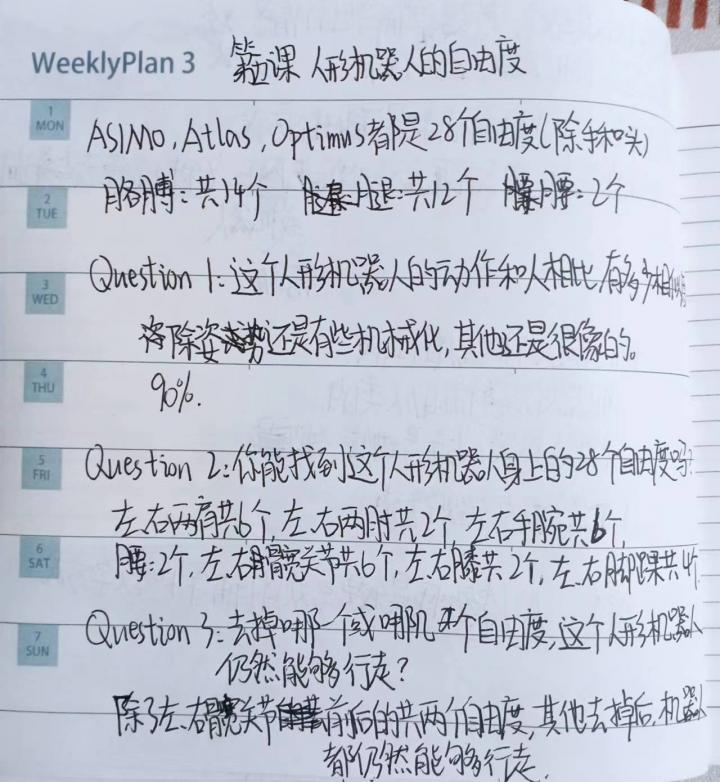 WeeklyPlan 3 第五课 人形机器人的自由度
1
MON
ASIMO, Atlas, Optimus都是28个自由度(除手和头)
2
TUE
胳膊:共14个 腿:共12个 腰:2个
3
WED
Question 1:这个人形机器人的动作和人相比,有多少相似
除姿势还是有些机械化,其他还是很像的。
4
THU
90%.
5
FRI
Question 2:你能找到这个人形机器人身上的28个自由度吗?
左.右两肩共6个,左.右两肘共2个,左右手腕共6个,
6
SAT
腰:2个,左.右髋关节共6个,左.右膝共2个,左.右脚踝共4个
7
SUN
Question 3:去掉哪一个或哪几个自由度,这个人形机器人
仍然能够行走?
除了左.右髋关节前后的共两个自由度,其他去掉后,机器人
都仍然能够行走.